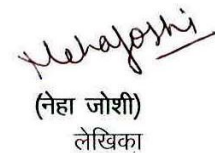 Nehajoshi
(नेहा जोशी)
लेखिका